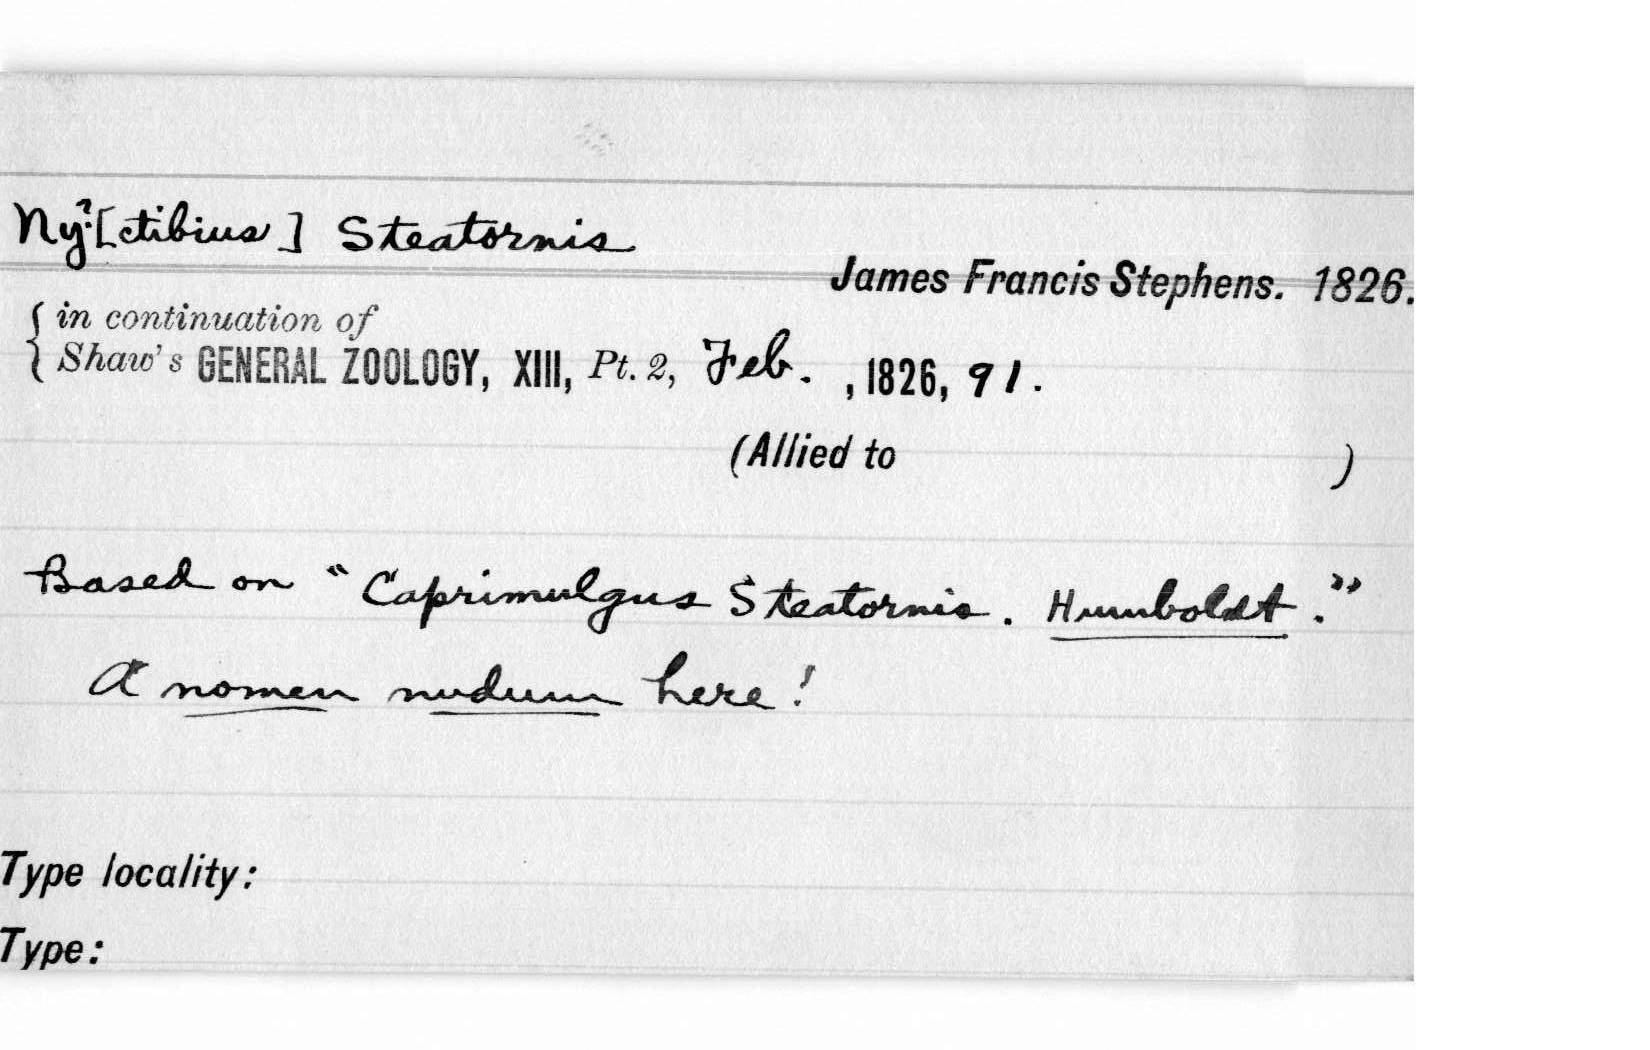 Ny?.[ctibius] Steatornis
James Francis Stephens. 1826.
{ in continuation of
Shaw's GENERAL ZOOLOGY, XIII, Pt. 2, Feb. , 1826, 91.
(Allied to )
Based on "Caprimulgus Steatornis. Humboldt."
A nomen nudum here!
Type locality:
Type: